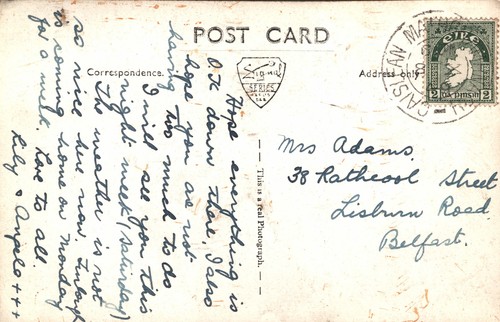 POST CARD
Correspondence.
Address only
SERIES
This is a real Photograph.
CAISLEAN
EIRE
2 2
Hope everything is
O.K down there. I also
hope you are not
having too much to do
I will see you this
night week (Saturday)
The weather is not
so nice here now.
is coming home on Monday
for a week. Love to all.
Lily & Angela +++
Mrs Adams.
38 Rathcool Street
Lisburn Road
Belfast.